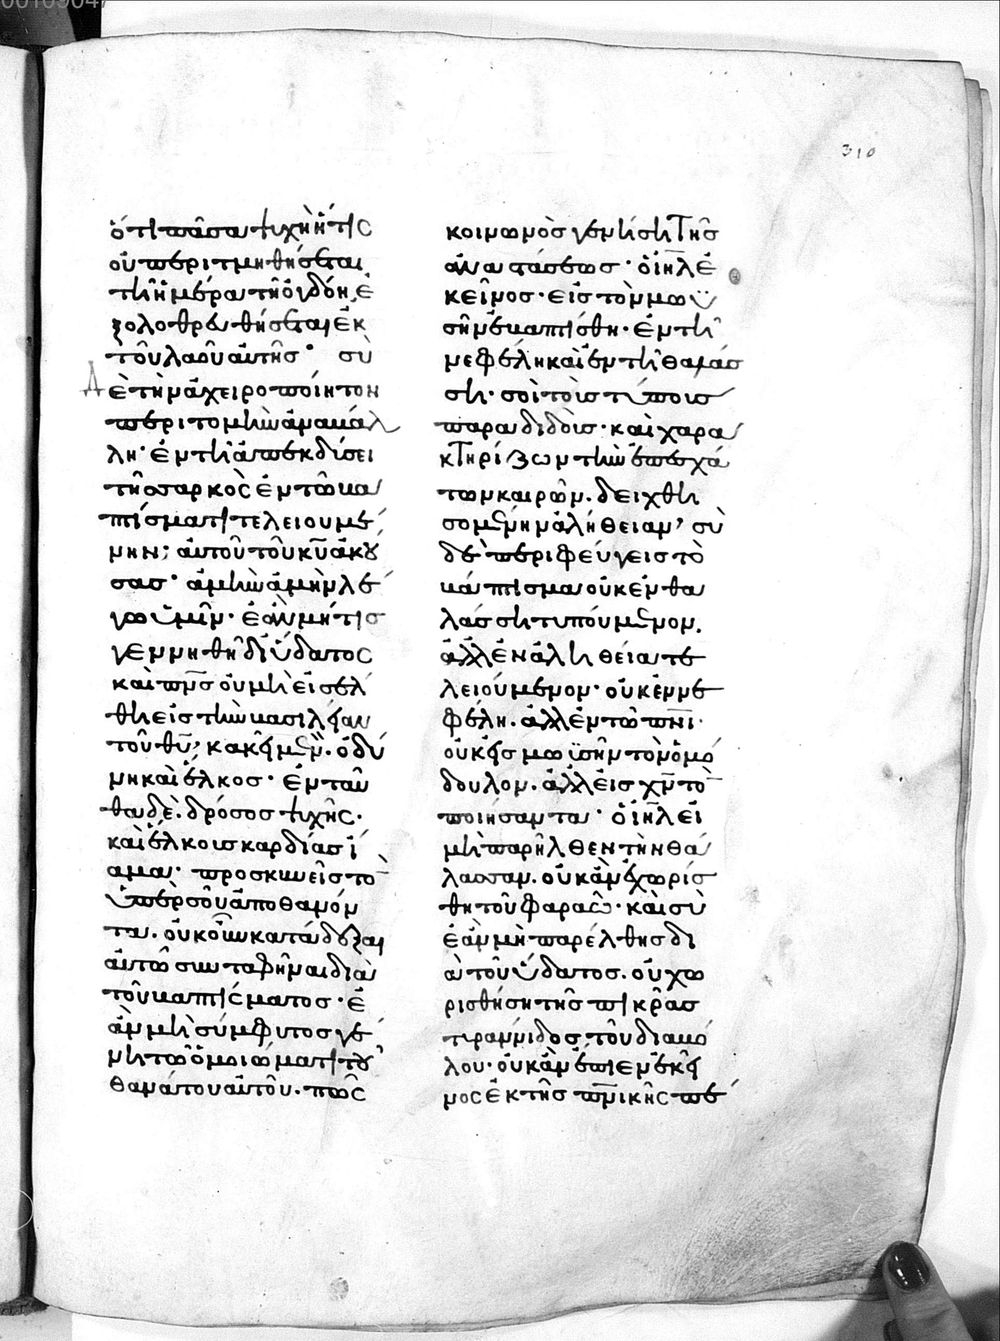 310
ὅτι πᾶσα ψυχὴ ἥτις
οὐ περιτμηθήσεται
τῆ ἡμέρα τῆ ὀγδόη, ἐ
ξολοθρευθήσεται ἐκ
τοῦ λαοῦ αὐτῆς· σὺ
δὲ τὴν ἀχειροποίητον
περιτομὴν ἀναβάλ
λη· ἐν τῆ ἀπεκδύσει
τῆς σαρκὸς ἐν τῶ βα
πτίσματι τελειουμέ
νην; αὐτοῦ τοῦ κυ ἀκού
σας· ἀμὴν ἀμὴν λέ
γω ὑμῖν· ἐὰν μή τις
γεννηθῆ δι ὕδατος
καὶ πνς οὐ μὴ εἰσέλ
θη εἰς τὴν βασιλείαν
τοῦ θυ; κακεῖ μὲν. ὀδύ
νη καὶ ἕλκος· ἐνταῦ
θα δὲ. δρόσος ψυχῆς·
καὶ ἕλκους καρδίας ἴ
αμα· προσκυνεῖς τὸν
ὑπὲρ σοῦ ἀποθανόν
τα. οὐκοῦν κατάδεξαι
αὐτῶ συνταφῆναι διὰ
τοῦ βαπτίσματος· ἐ
ὰν μὴ σύμφυτος γέ
νη τῶ ὁμοιώματι τοῦ
θανάτου αὐτοῦ. πῶς
κοινωνὸς γενήση τῆς
ἀναστάσεως· ὁ ιηλ ἐ
κεῖνος· εἰς τὸν μωϋ
σῆν ἐβαπτίσθη· ἐν τῆ
νεφέλη καὶ ἐν τῆ θαλάσ
ση· σοὶ τοὺς τύπους
παραδιδοὺς· καὶ χαρα
κτηρίζων τὴν ἐπ ἐσχά
των καιρῶν. δειχθη
σομένην ἀλήθειαν, σὺ
δὲ περιφεύγεις τὸ
βάπτισμα οὐκ ἐν θα
λάσση τυπούμενον.
ἀλλ ἐν ἀληθεία τε
λειούμενον· οὐκ ἐν νε
φέλη. ἀλλ ἐν τῶ πνι·
οὐκ εἰς μωϋσῆν τὸν ὁμό
δουλον. ἀλλ εἰς χν τὸν
ποιήσαντα· ὁ ιηλ εἰ
μὴ παρῆλθεν τὴν θά
λασσαν. οὐκ ἂν ἐχωρίσ
θη τοῦ φαραώ· καὶ σὺ
ἐὰν μὴ παρέλθης δι
ὰ τοῦ ὕδατος. οὐ χω
ρισθήση τῆς πικρᾶς
τυραννίδος τοῦ διαβό
λου· οὐκ ἂν ἔπιεν ἐκεῖ
νος ἐκ τῆς πνικῆς πέ